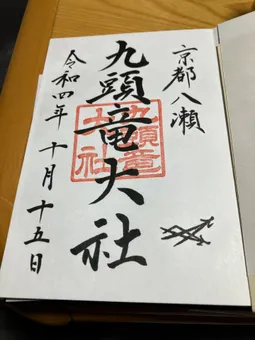 京都八瀬
九頭竜大社
九頭竜
大社
令和四年 十月 十五日